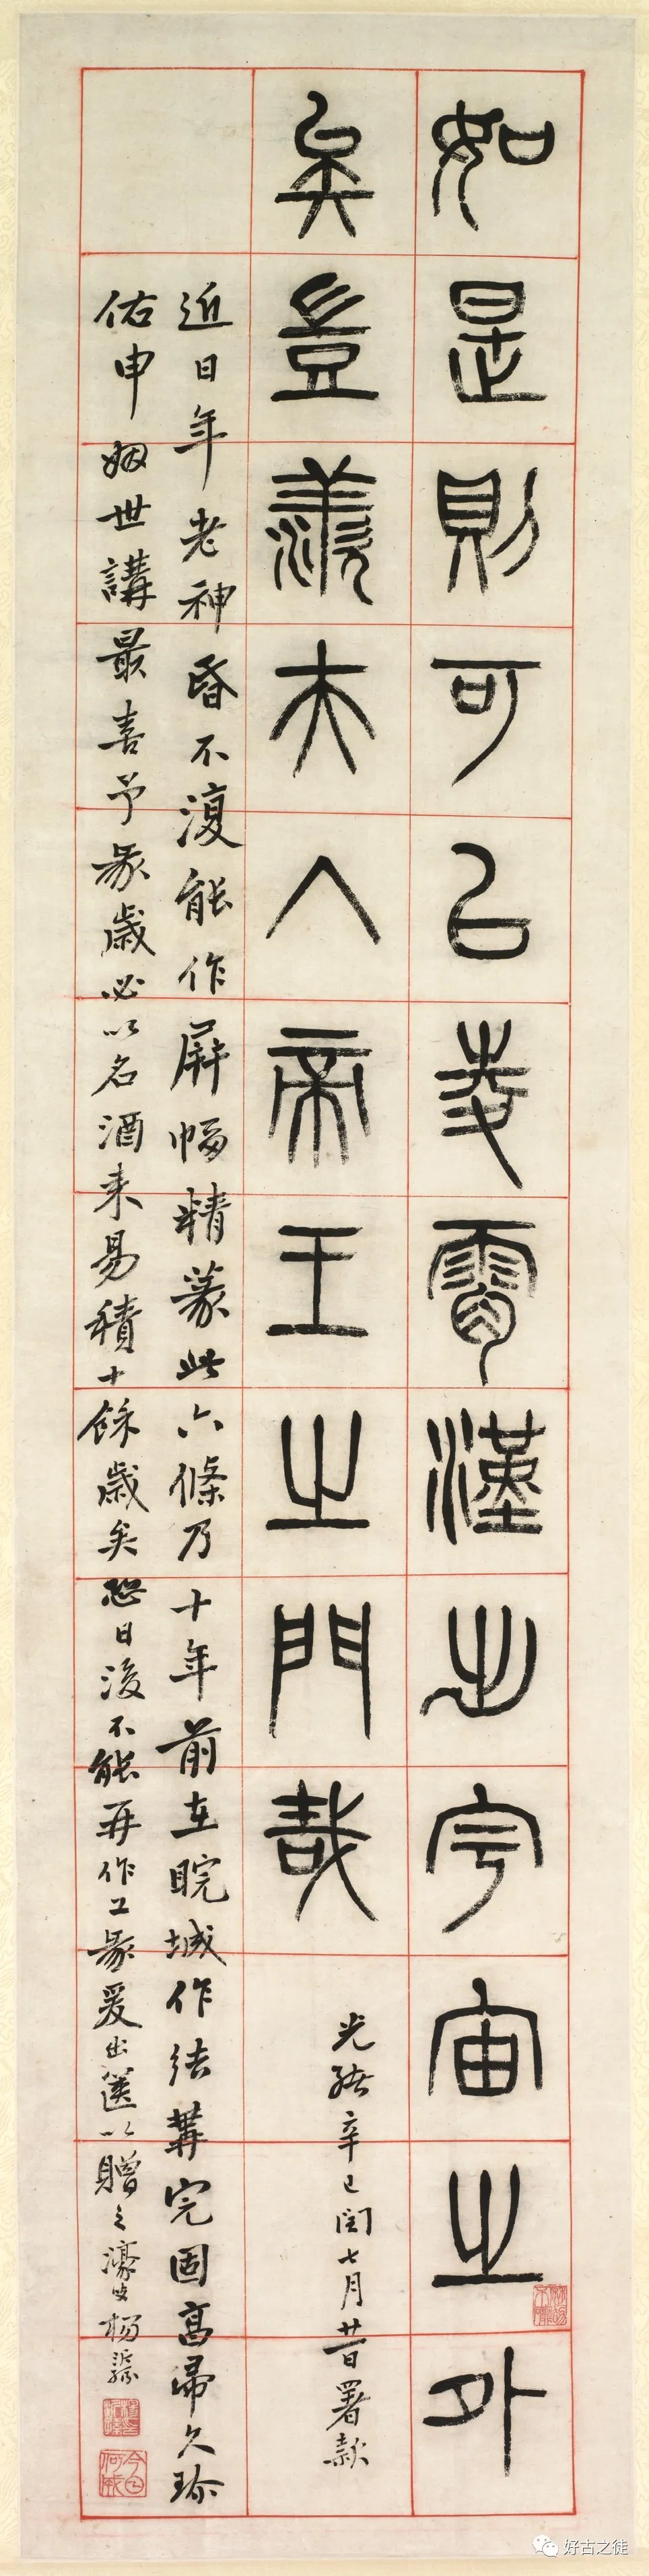 如是則可㠯夌霄漢出宇宙之外
矣豈羨夫入帝王之門哉
光緒辛巳閏七月廿一日署款
近日年老神昏不復能作屏幅精篆此六條乃十年前在睆城作結構完固高帚久珍
佑申姻世講最喜予篆歲必以名酒来易積十餘歲矣恐日後不能再作工篆爰出篋以贈之濠叟楊沂孫
好古之徒